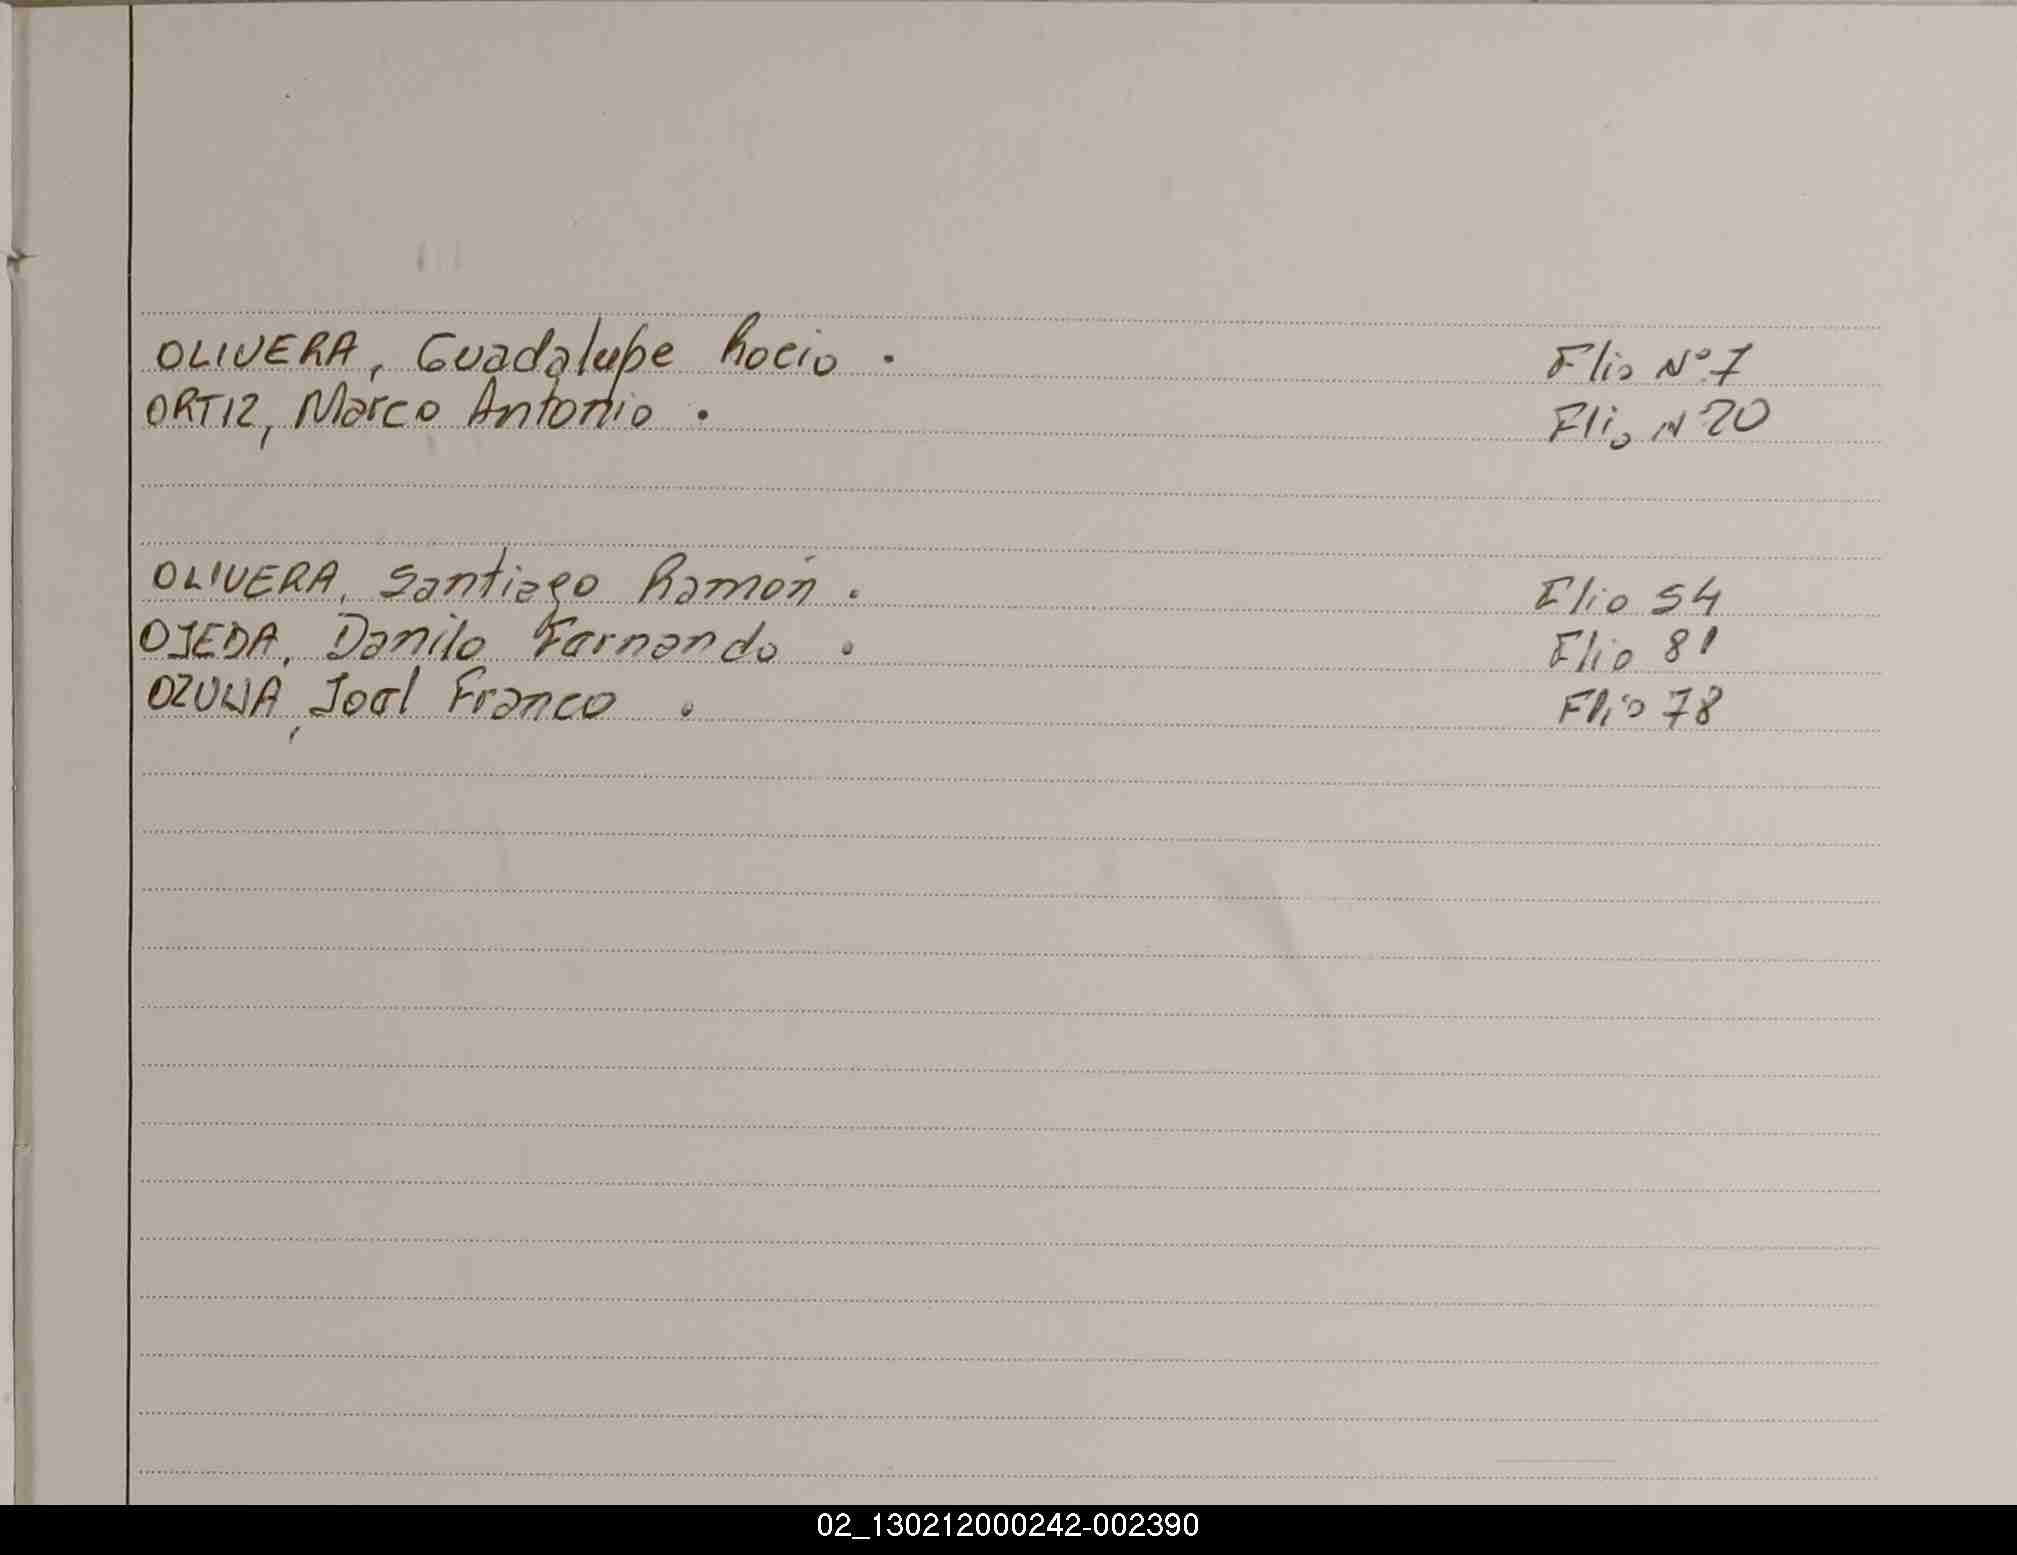 OLIVERA, Guadalupe Rocio . Flio N° 7
ORTIZ, Marco Antonio . Flio N 20
OLIVERA, Santiago Ramón . Flio 54
OJEDA, Danilo Fernando . Flio 81
OZUNA, Joel Franco . Flio 78
02_130212000242-002390